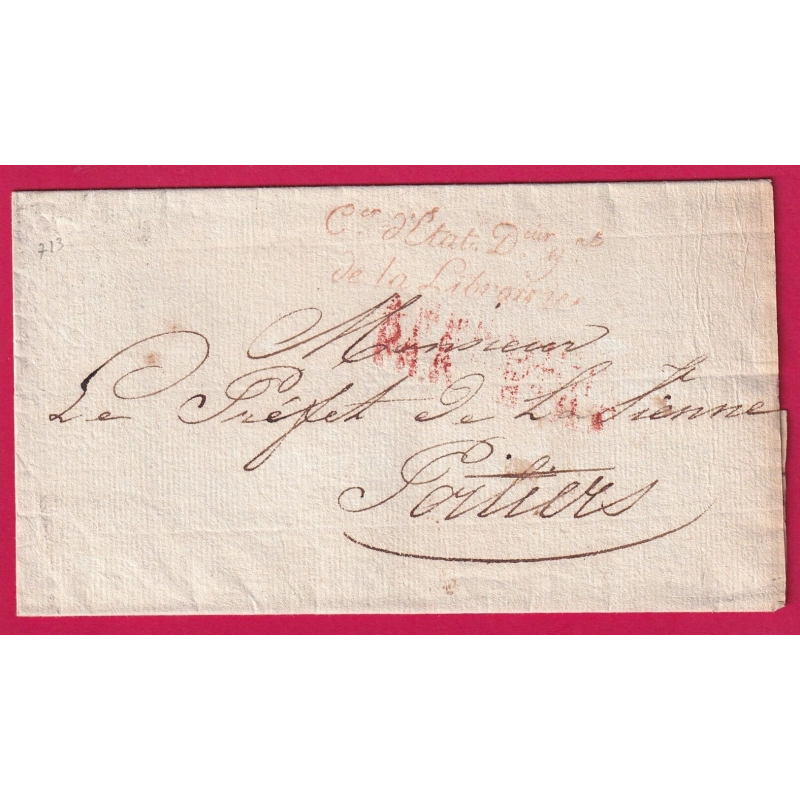 713
C.er d'Etat. D.eur g.al
de la Librairie.
Monsieur
Le Préfet de la Vienne
Poitiers